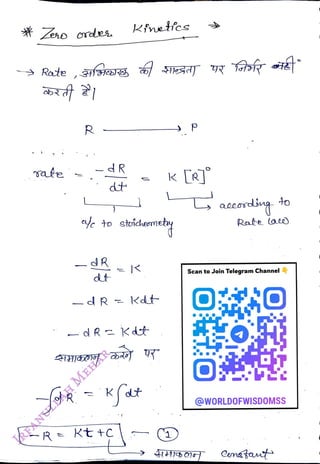 * Zero order Kinetics →
→ Rate, अभिकारक की सान्द्रता पर निर्भर नहीं
करती है।
R ⟶ P
rate = -dR/dt = K [R]⁰
a/c to stoichiometry
according to
Rate law
-dR/dt = K
-dR = Kdt
-dR = Kdt
समाकलन करने पर
-∫dR = K∫dt
-R = Kt + C — ①
→ समाकलन constant
Scan to Join Telegram Channel 👇
@WORLDOFWISDOMSS